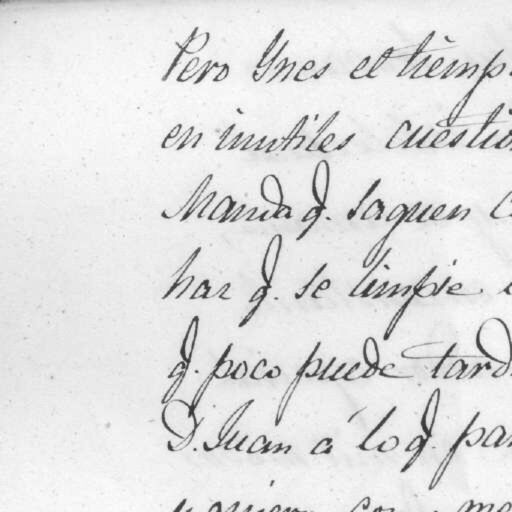 Pero Ynes el tiemp
en inutiles cuestio
Manda q. saquen c
haz q. se limpie
q. poco puede tard
D. Juan á lo q. par